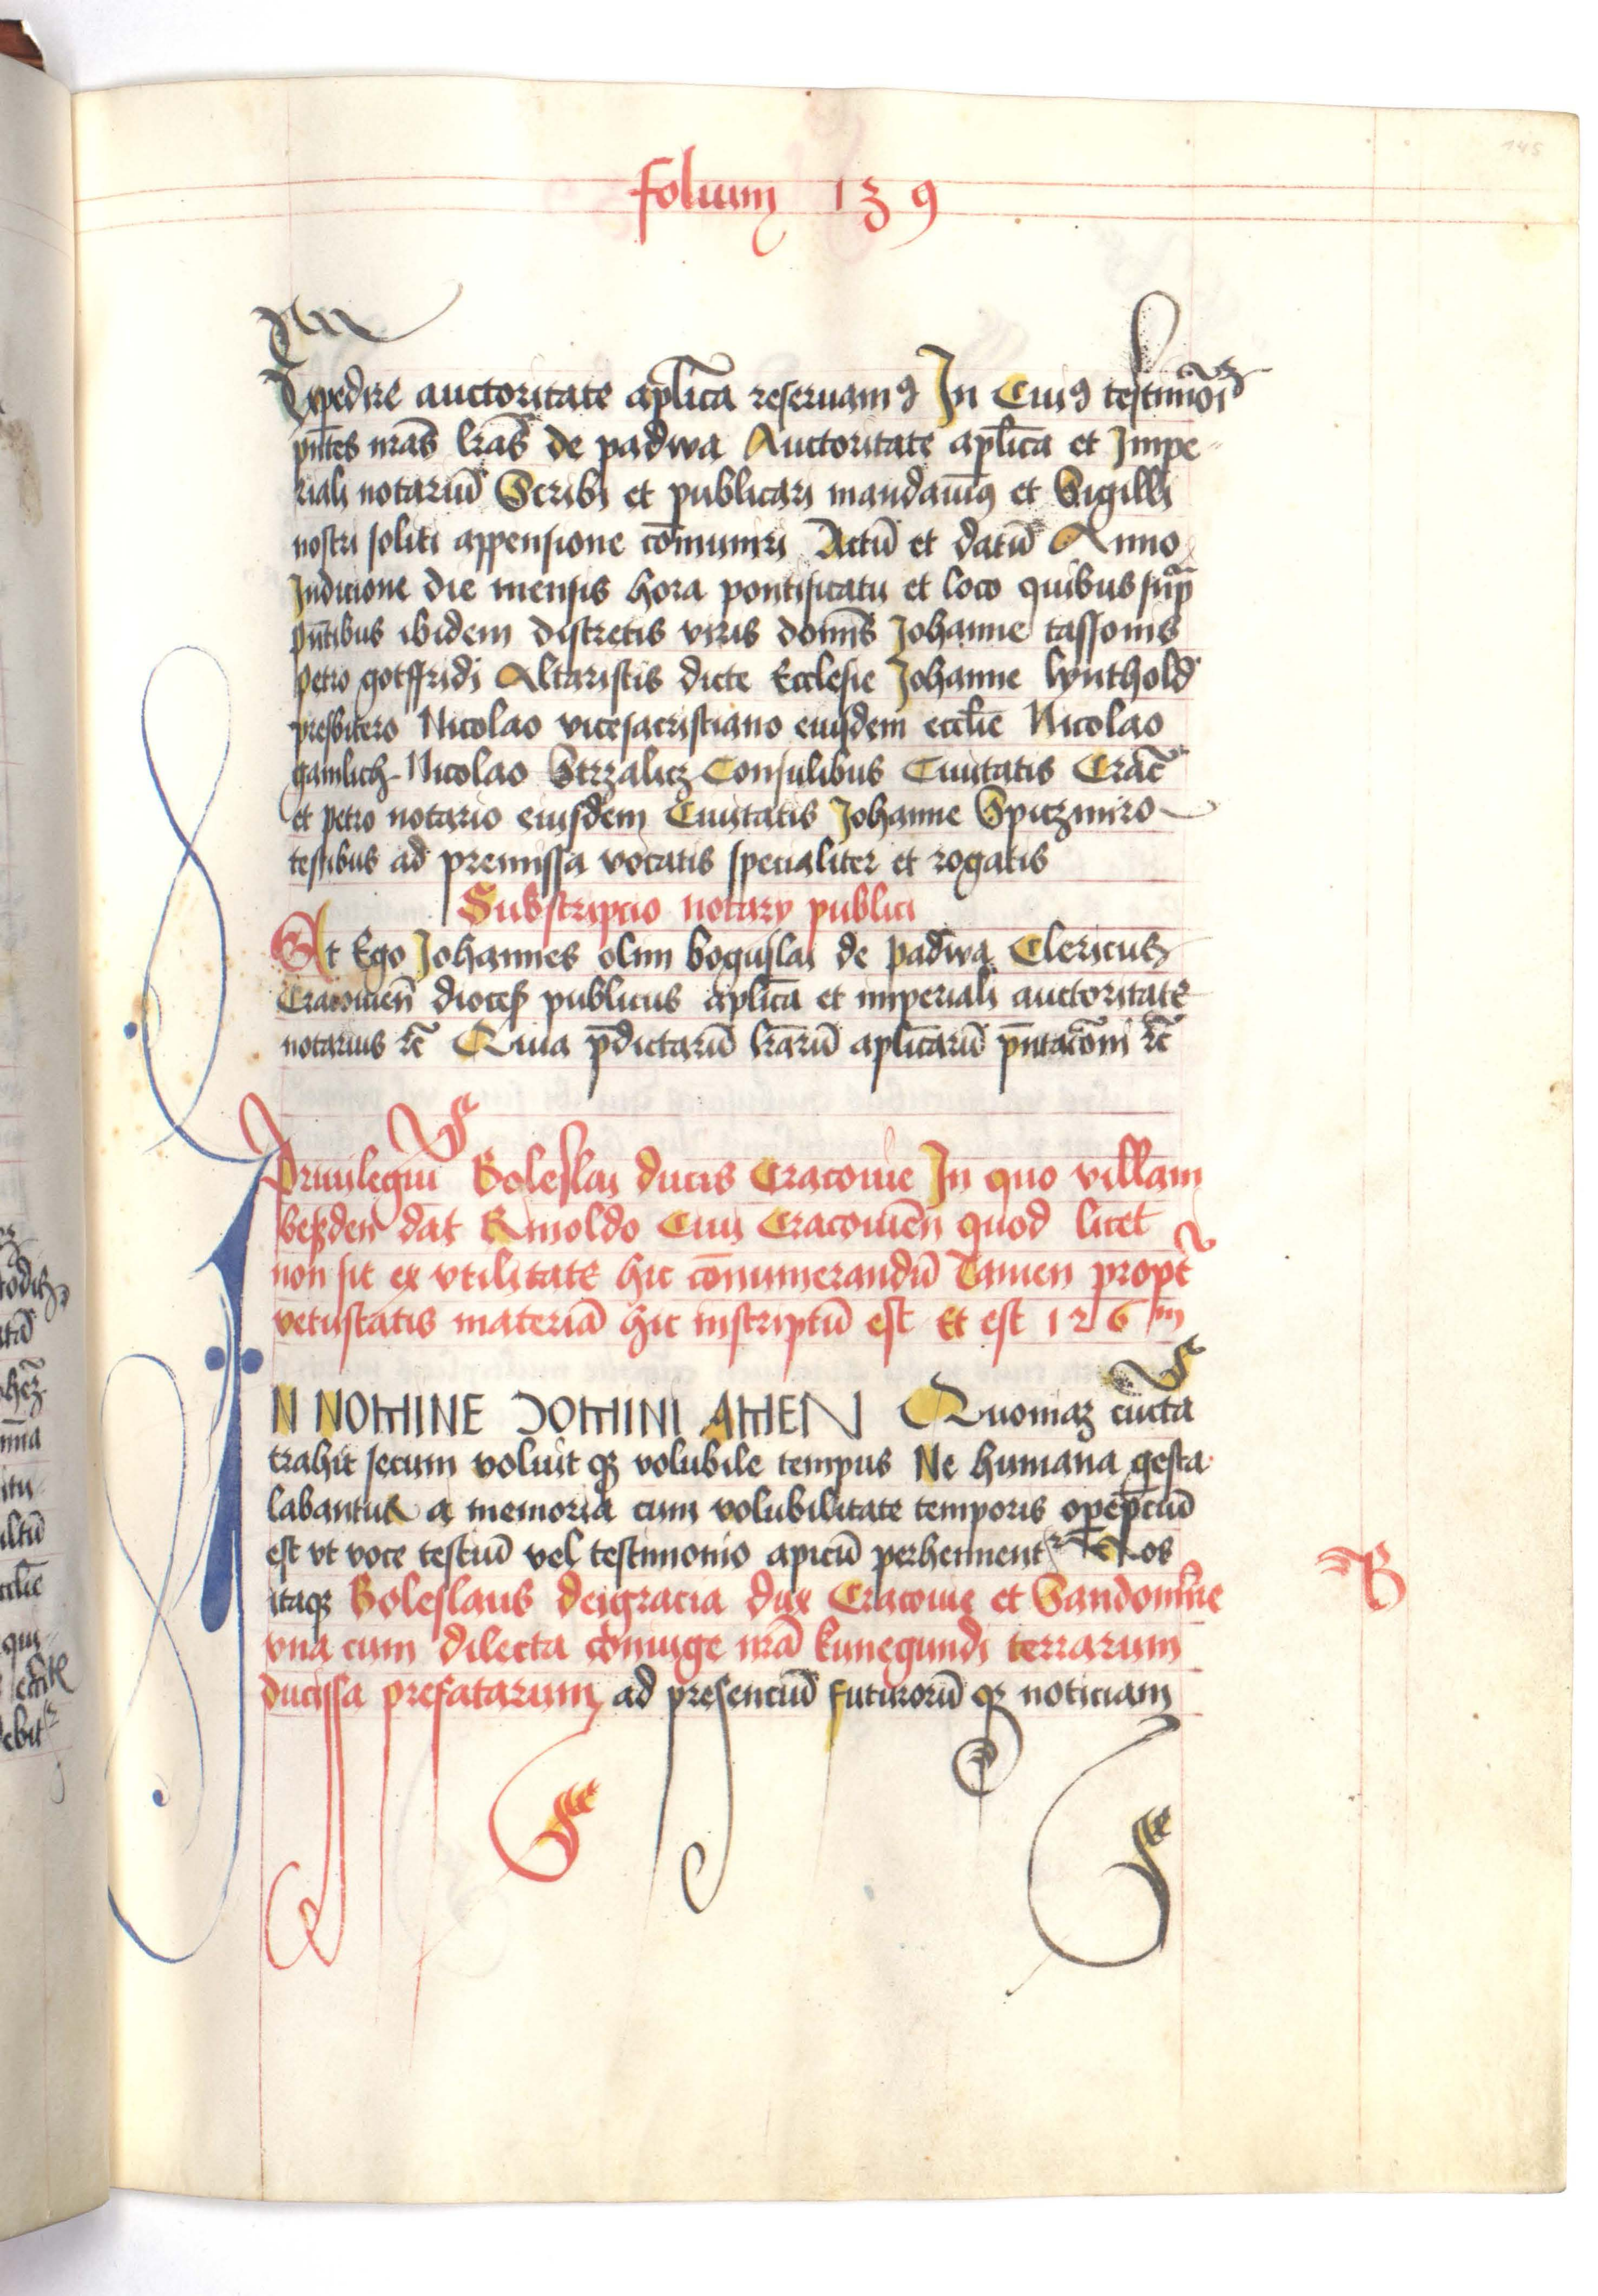 folium 139
145
Expedire auctoritate aplica reseruamꝰ In Cuiꝰ testimoi
pntes nras lras de padwa Auctoritate aplica et Impe-
riali notariū Scribi et publicari mandauimꝰ et Sigilli
nostri soliti appensione cōmuniri Actū et datū Anno
Indicione die mensis hora pontificatu et loco quibus sup̄
pn̄tibus ibidem discretis viris domīs Johanne tassonis
petro gotffridi Altaristis dicte Ecclesie Johanne lynthold
presbitero Nicolao vicesacristiano eiusdem eccl̄ie Nicolao
gamlich Nicolao Strzalicz Consulibus Ciuitatis Crac̄
et petro notario eiusdem Ciuitatis Johanne Spiczmiro
testibus ad premissa vocatis specialiter et rogatis
Subscripcio notary publici
Et Ego Johannes olim boguslai de padwa Clericus
Cracouien̄ dioces publicus aplica et imperiali auctoritate
notarius ꝛc̄ Quia p̄dictarū lrarū aplicarū p̄ntacōni ꝛc̄
Priuilegiū Boleslai ducis Cracouie In quo villam
beßden dat Rinoldo Ciui Cracouien̄ quod licet
non sit ex vtilitate hic cōnumerandū Tamen propt̄
vetustatis materiā hic inscriptū est Et est 126 m
IN NOMINE DOMINI AMEN Quoniaꝫ cūcta
trahit secum voluit qꝫ volubile tempus Ne humana gesta
labantur a memoria cum volubilitate temporis opep̄ciū
est vt voce testiū vel testimonio apicū perhennentꝛ Nos
itaqꝫ Boleslaus deigracia dux Cracouie et Sandomīrie
vna cum dilecta cōniuge nrā kunegundi terrarum
ducissa prefatarum ad presenciū futurorū qꝫ noticiam
B